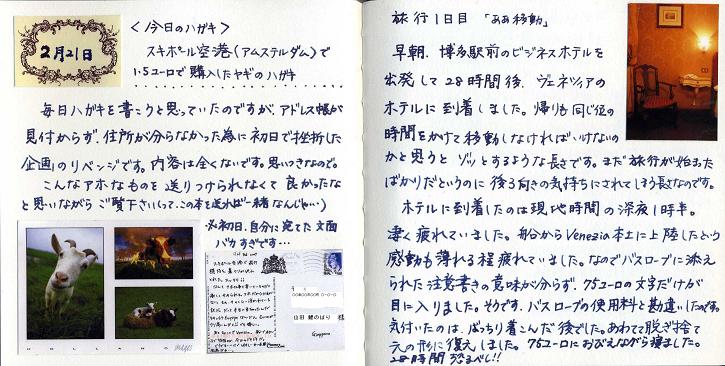 2月21日
〈今日のハガキ〉
スキポール空港(アムステルダム)で
1.5ユーロで購入したヤギのハガキ
毎日ハガキを書こうと思っていたのですが、アドレス帳が
見付からず、住所が分らなかった為に初日で挫折した
企画のリベンジです。内容は全くないです。思いつきなので。
こんなアホなものを送りつけられなくて良かったな
と思いながらご覧下さい(って、この本を送れば一緒なんじゃ…)
※初日、自分に宛てた文面
バカすぎです…
HOLLAND
旅行1日目「ああ移動」
早朝、博多駅前のビジネスホテルを
出発して28時間後、ヴェネツィアの
ホテルに到着しました。帰りも同じ位の
時間をかけて移動しなければいけないの
かと思うとゾッとするような長さです。まだ旅行が始まった
ばかりだというのに後ろ向きの気持ちにされてしまう長さなのです。
ホテルに到着したのは現地時間の深夜1時半。
凄く疲れていました。船からVenezia本土に上陸したという
感動も薄れる程疲れていました。なのでバスローブに添え
られた注意書きの意味が分らず、75ユーロの文字だけが
目に入りました。そうです。バスローブの使用料と勘違いしたのです。
気付いたのは、ばっちり着こんだ後でした。あわてて脱ぎ捨て
元の形に復元しました。75ユーロにおびえながら寝ました。
28時間恐るべし!!